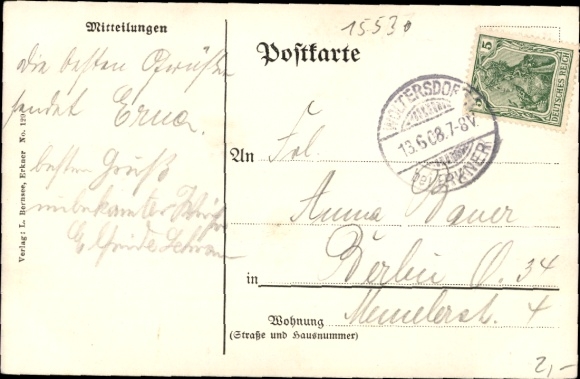 15530
Mitteilungen
Postkarte
5
DEUTSCHES REICH
WOLTERSDORF
13.6.08.7-8V.
(bei) ERKNER
die besten Grüße
sendet Erna.
besten Gruß
unbekannter Weise
Elfriede
Verlag: L. Bernsee, Erkner No. 129
An Frl.
Anna Bauer
in Berlin O. 34
Wohnung Memelerstr. 4
(Straße und Hausnummer)
2,-